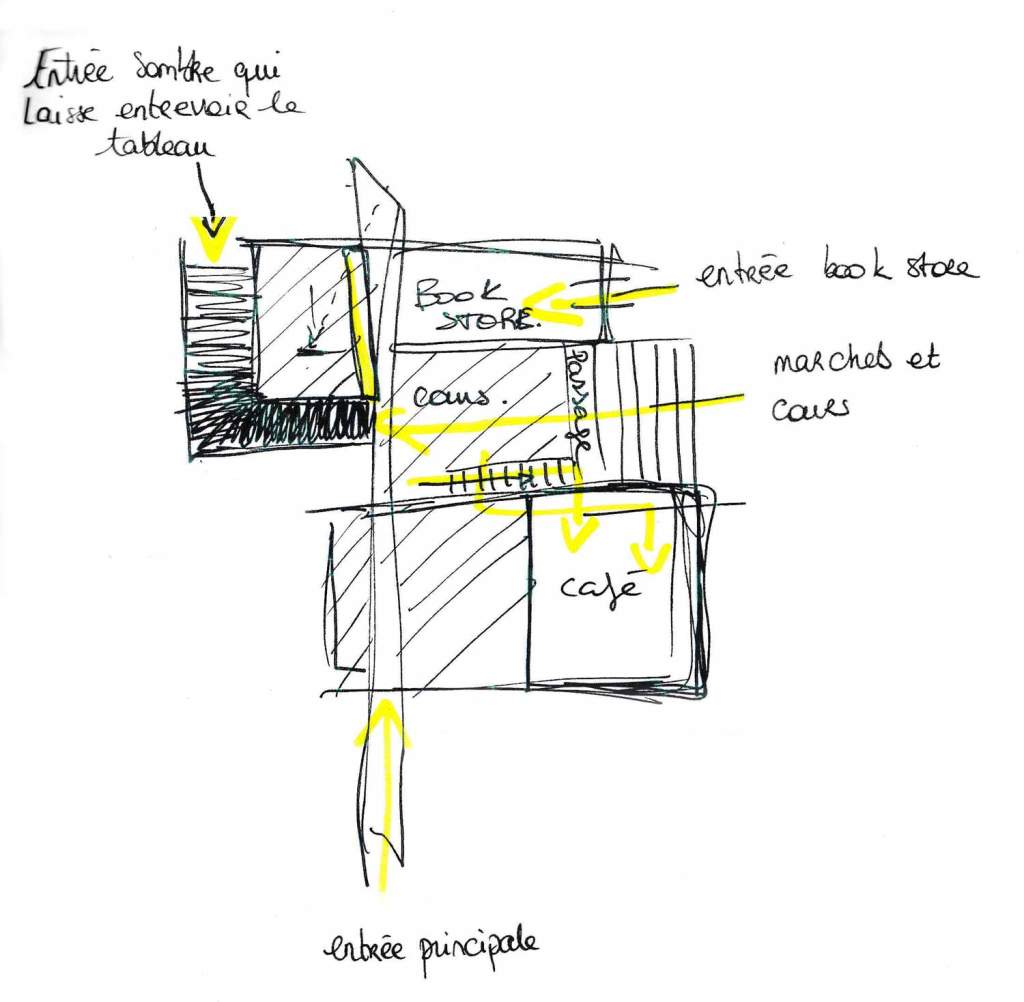 Entrée sombre qui
laisse entrevoir le
tableau
entrée book store
BOOK
STORE.
marches et
cours
Passage
cours.
café
entrée principale